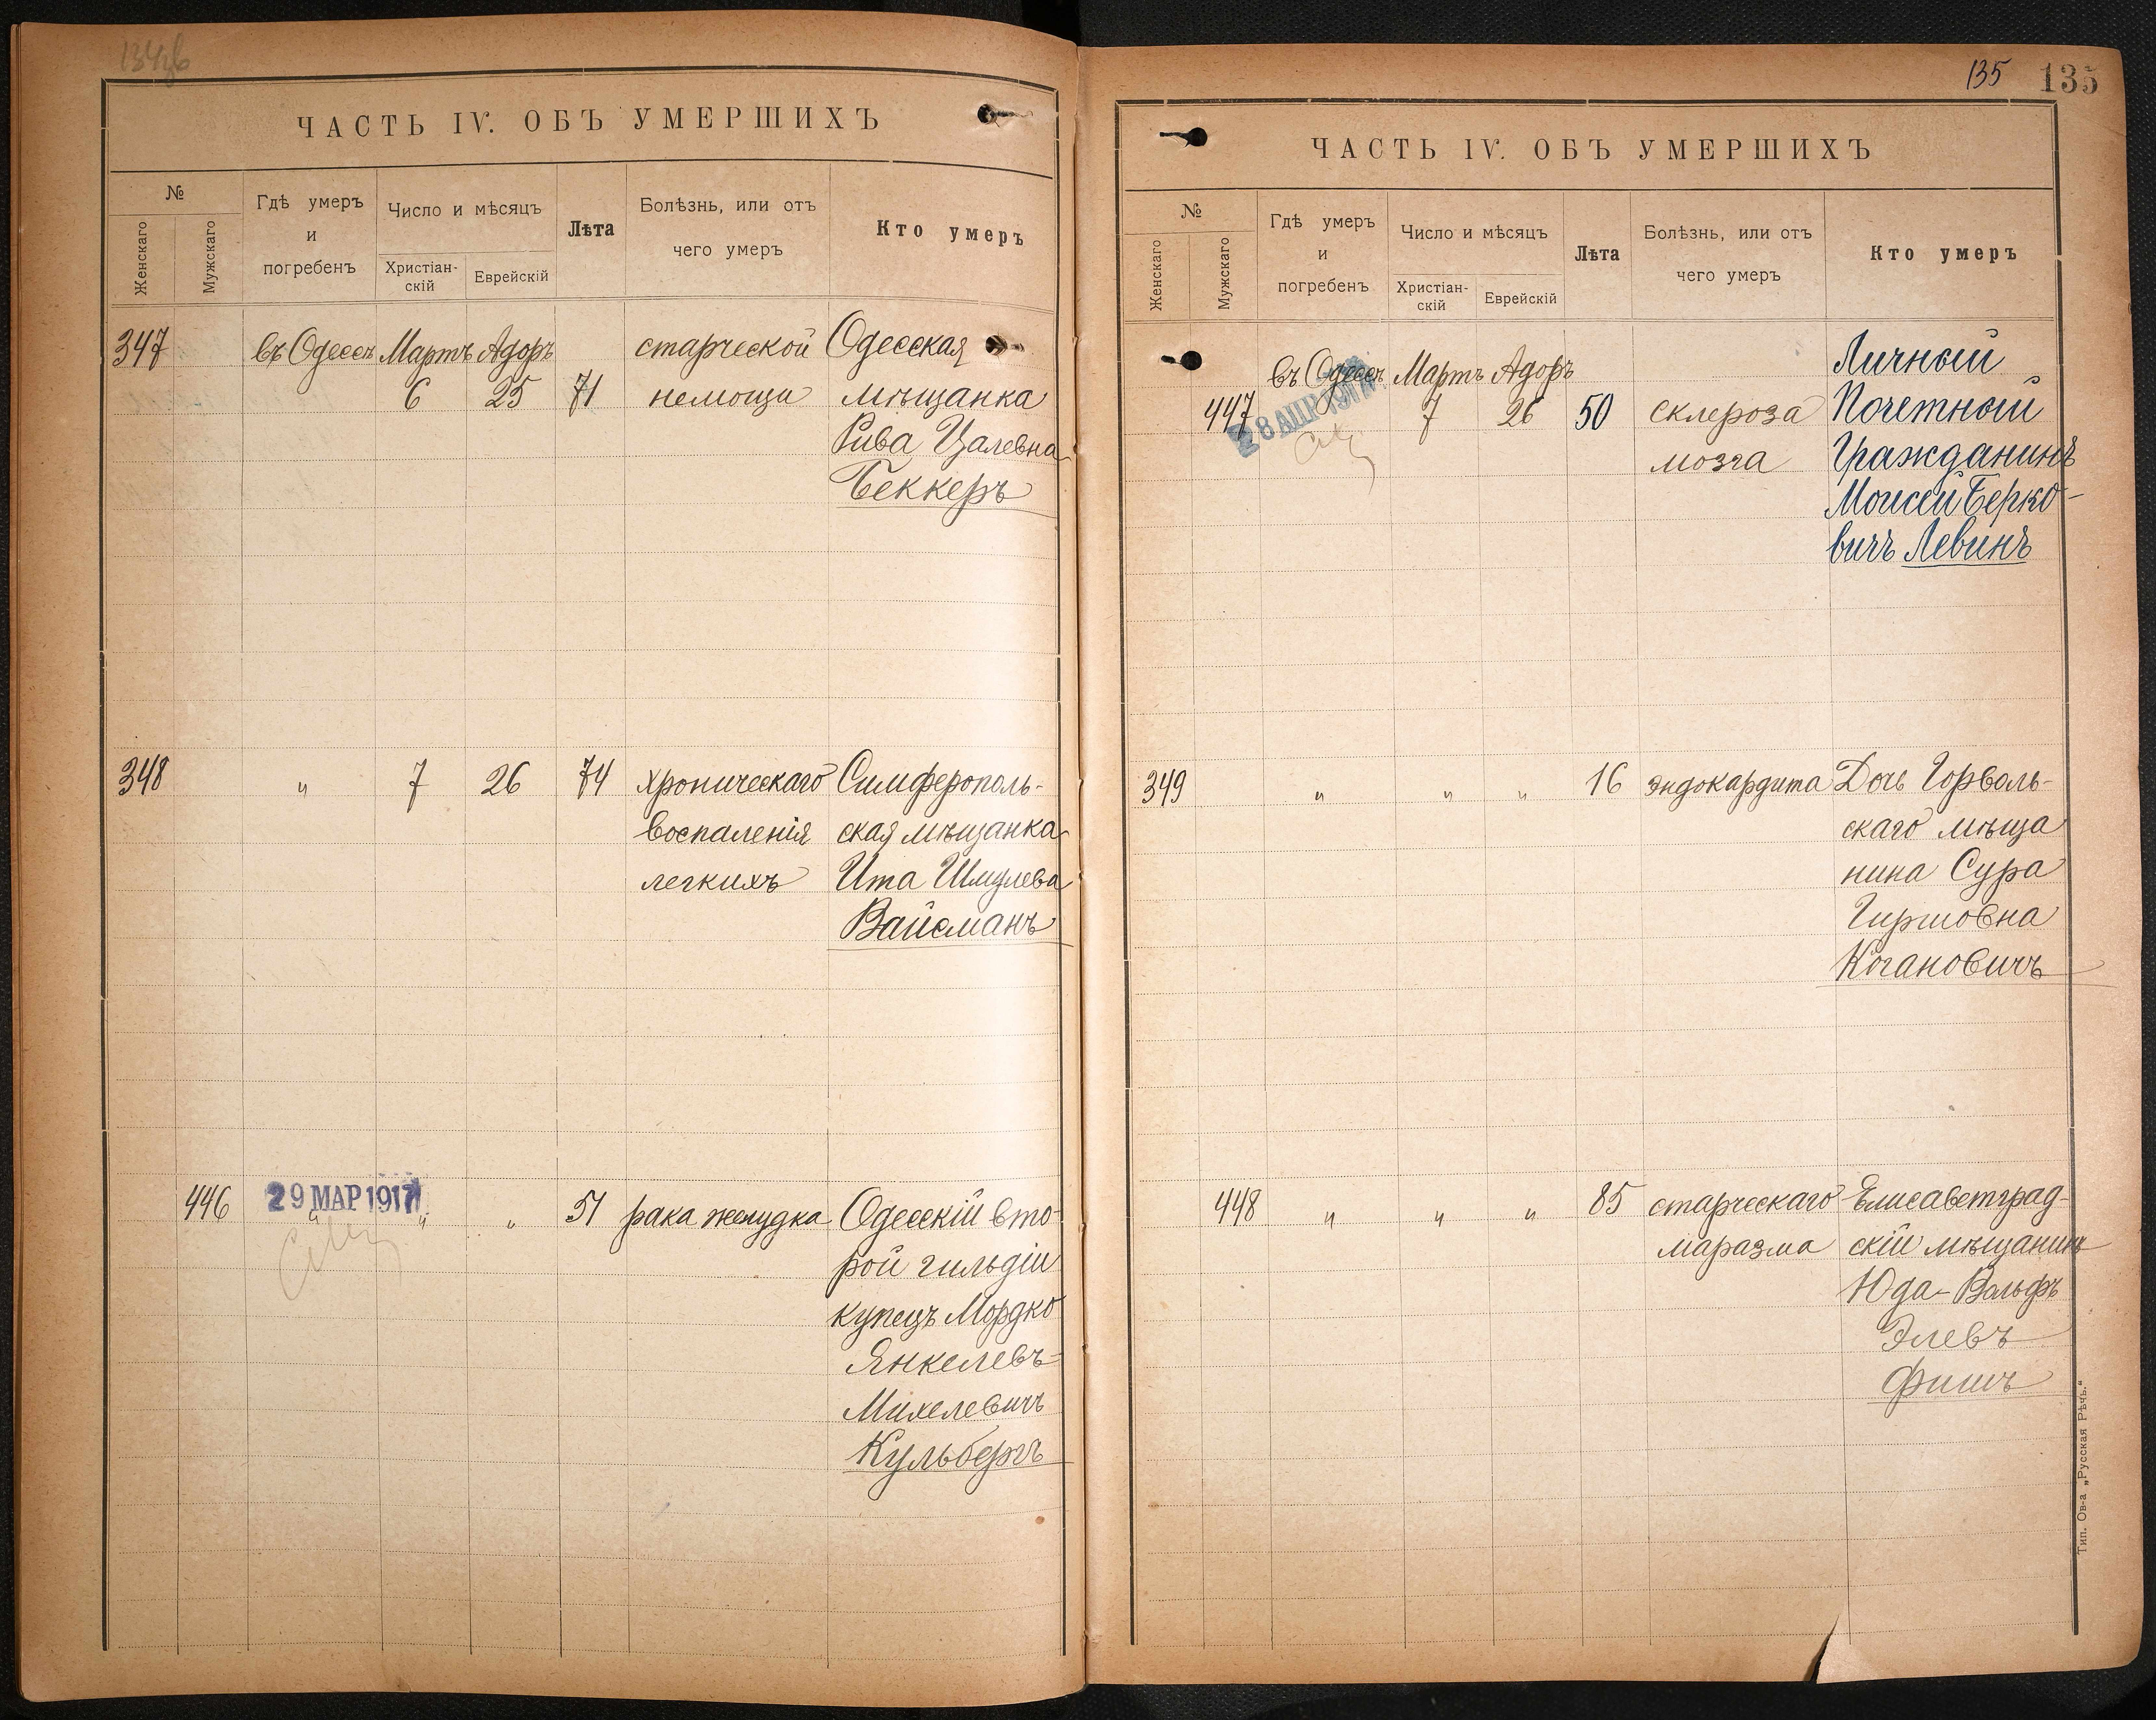 ЧАСТЬ IV. ОБЪ УМЕРШИХЪ
№
Женскаго
Мужскаго
Гдѣ умеръ
и
погребенъ
Число и мѣсяцъ
Христіан-
скій
Еврейскій
Лѣта
Болѣзнь, или отъ
чего умеръ
Кто умеръ
347 въ Одессѣ Мартъ Адоръ старческой Одесская
6 25 71 немощи мѣщанка
Рива Цалевна
Беккеръ
348 " 7 26 74 хроническаго Симферополь-
воспаленія ская мѣщанка
легкихъ Ита Шмулева
Вайсманъ
29 МАР 1917
446 " " " 51 рака желудка Одесскій вто-
рой гильдіи
купецъ Мордко
Янкелевъ-
Михелевичъ
Кульбергъ
135 135
ЧАСТЬ IV. ОБЪ УМЕРШИХЪ
№
Женскаго
Мужскаго
Гдѣ умеръ
и
погребенъ
Число и мѣсяцъ
Христіан-
скій
Еврейскій
Лѣта
Болѣзнь, или отъ
чего умеръ
Кто умеръ
Личный
въ Одессѣ Мартъ Адоръ
447 7 26 50 склероза Почетный
28 АПР 1917
мозга Гражданинъ
Моисей Берко-
вичъ Левинъ
349 " " " 16 эндокардита Дочь Горваль-
скаго мѣща
нина Сура
Гиршовна
Когановичъ
448 " " " 85 старческаго Елисаветград-
маразма скій мѣщанинъ
Юда-Вольфъ
Элевъ
Фишъ
Тип. Ов-а „Русская Рѣчь."